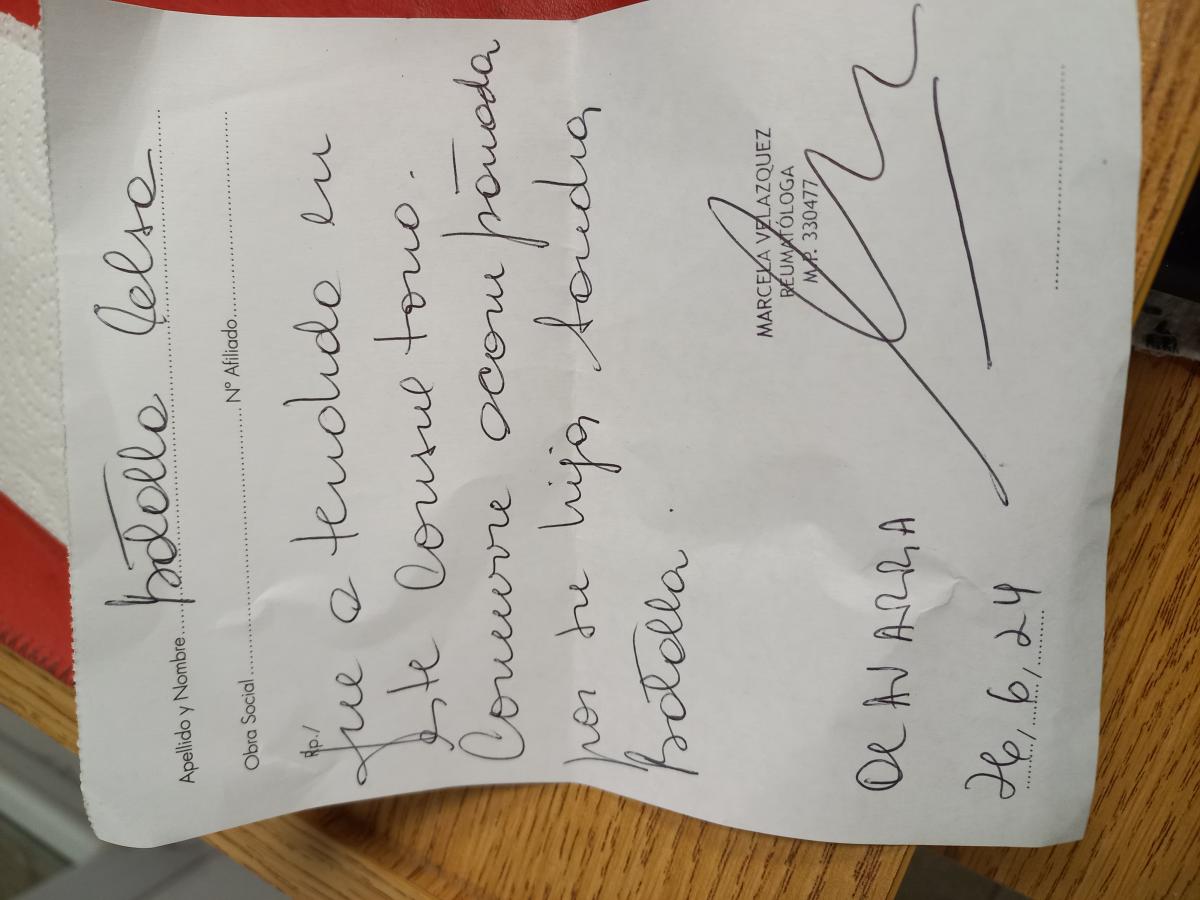 Apellido y Nombre Batalla Celsa
Obra Social N° Afiliado
Rp./
fue atendida en
Este Consultorio.
Concurre acompañada
por su hija Sandra
Batalla.
MARCELA VELAZQUEZ
REUMATÓLOGA
M.P. 330477
OLAVARRIA
26, 6, 24